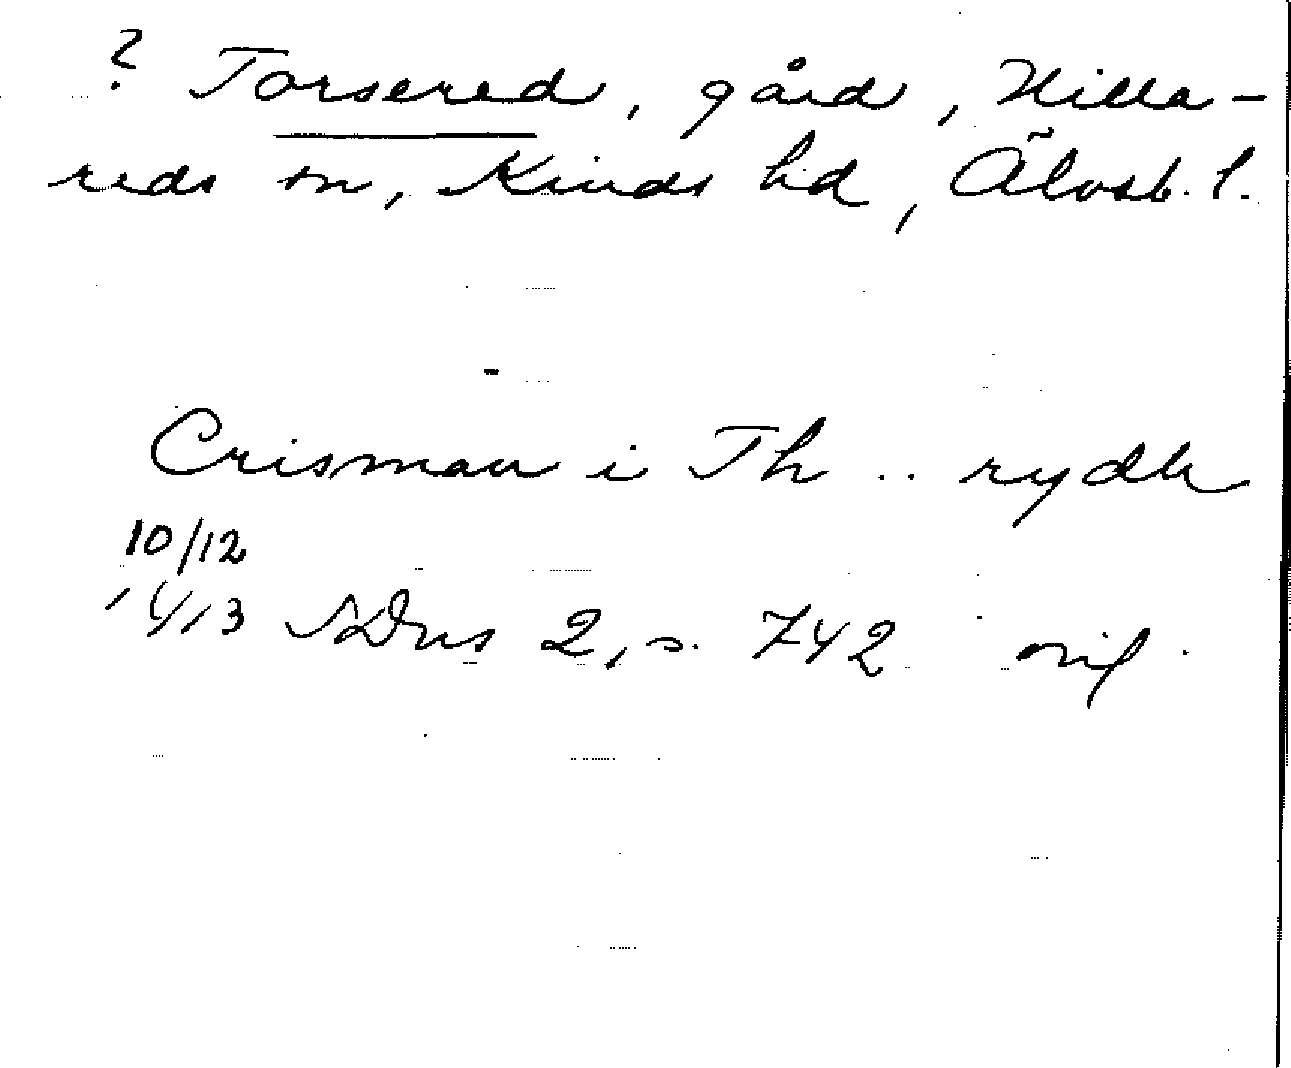 ? Torsered, gård, Hilla-
reds sn, Kinds hd, Älvsb. l.
Crisman i Th .. rydh
10/12
1413 SDns 2, s. 742 orig.